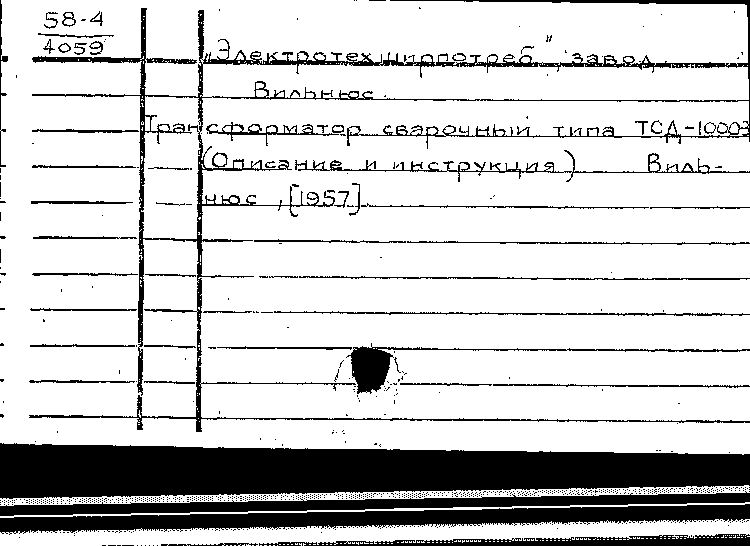 58-4
4059
„Электротехширпотреб", завод
Вильнюс.
Трансформатор сварочный типа ТСД-10003
(Описание и инструкция) Виль-
нюс, [1957].